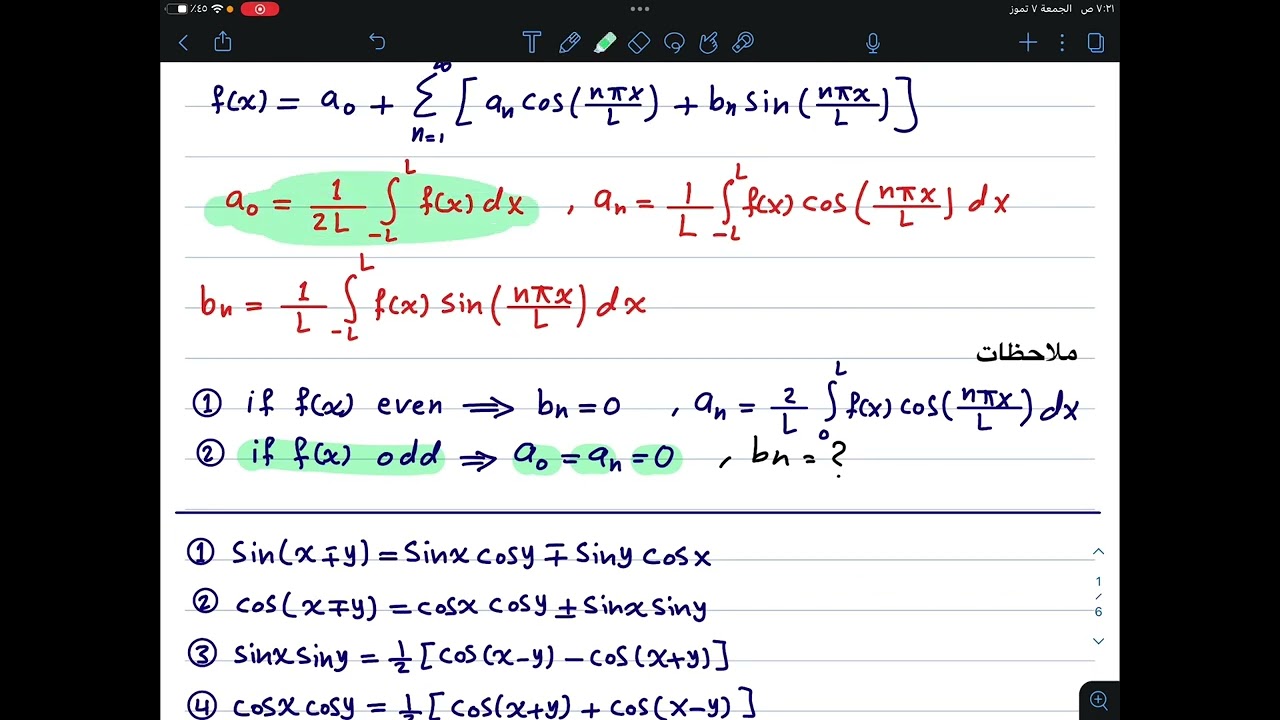 ٪٤٥ ٧:٢١ ص الجمعة ٧ تموز
f(x) = a₀ + ∑ₙ₌₁^∞ [aₙ cos(nπx/L) + bₙ sin(nπx/L)]
a₀ = 1/2L ∫₋L^L f(x) dx , aₙ = 1/L ∫₋L^L f(x) cos(nπx/L) dx
bₙ = 1/L ∫₋L^L f(x) sin(nπx/L) dx
ملاحظات
① if f(x) even ⟹ bₙ = 0 , aₙ = 2/L ∫₀^L f(x) cos(nπx/L) dx
② if f(x) odd ⟹ a₀ = aₙ = 0 , bₙ = ?
① Sin(x∓y) = Sinx cosy ∓ Siny cosx
② cos(x∓y) = cosx cosy ± Sinx siny
③ sinx siny = 1/2 [cos(x-y) - cos(x+y)]
④ cosx cosy = 1/2 [cos(x+y) + cos(x-y)]
1/6